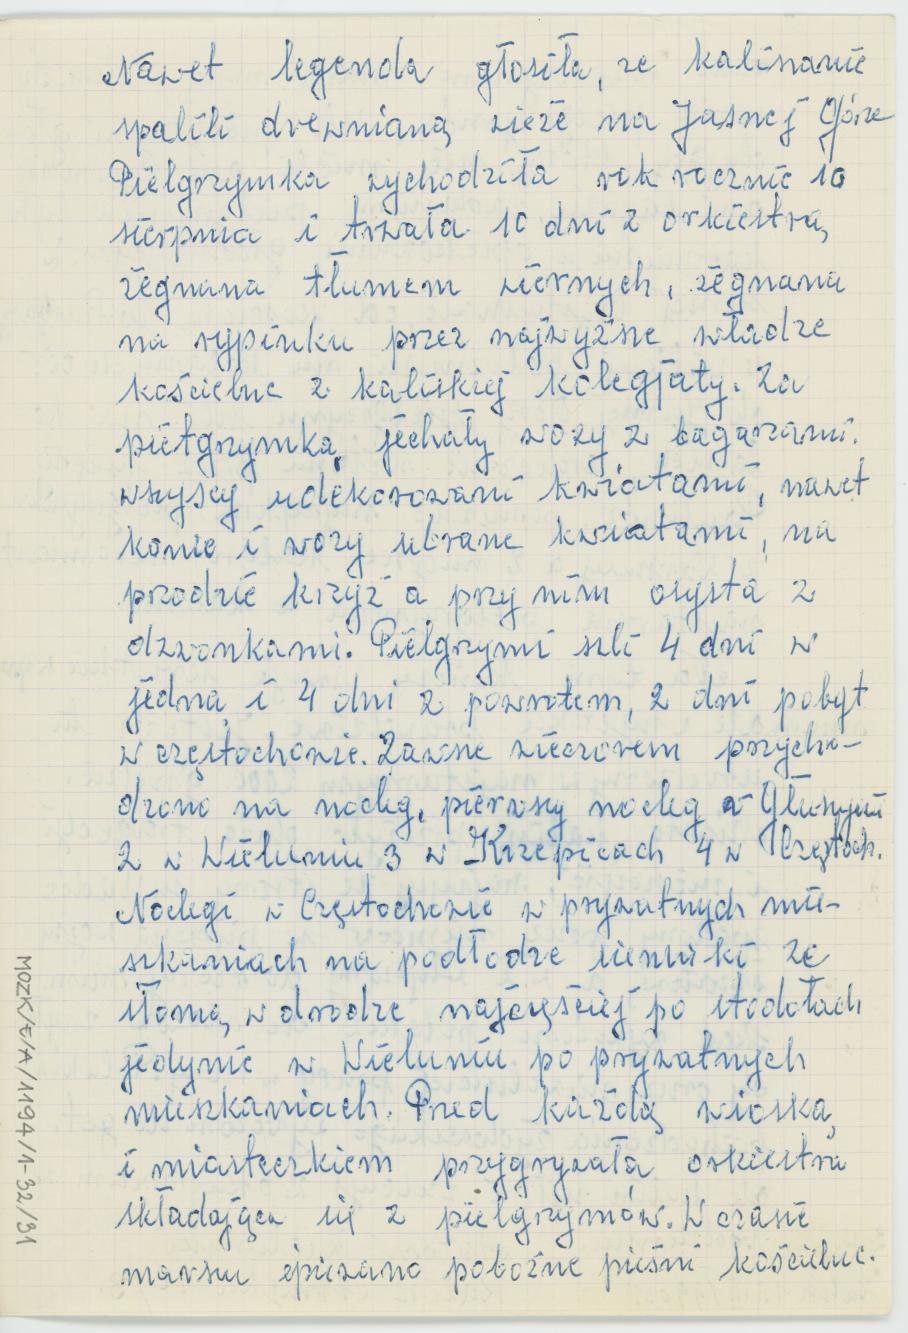 Nawet legenda głosiła, że kaliszanie
spalili drewnianą wieżę na Jasnej Górze
Pielgrzymka wychodziła rok rocznie 10
sierpnia i trwała 10 dni z orkiestrą,
żegnana tłumem wiernych, żegnana
na rypinku przez najwyższe władze
kościelne z kaliskiej kolegjaty. Za
pielgrzymką jechały wozy z bagażami.
wszyscy udekorowani kwiatami, nawet
konie i wozy ubrane kwiatami, na
przodzie krzyż a przy nim asysta z
dzwonkami. Pielgrzymi szli 4 dni w
jedną i 4 dni z powrotem, 2 dni pobyt
w częstochowie. Zawsze wieczorem przycho-
dzono na nocleg, pierwszy nocleg w Głuszyni
2 w Wieluniu 3 w Krzepicach 4 w Częstoch.
Noclegi w Częstochowie w prywatnych mie-
szkaniach na podłodze sienniki ze
słomą, w drodze najczęściej po stodołach
jedynie w Wieluniu po prywatnych
mieszkaniach. Przed każdą wioską
i miasteczkiem przygrywała orkiestra
składająca się z pielgrzymów. W czasie
marszu śpiewano pobożne pieśni kościelne.
MOZK/E/A/1194/1-32/31